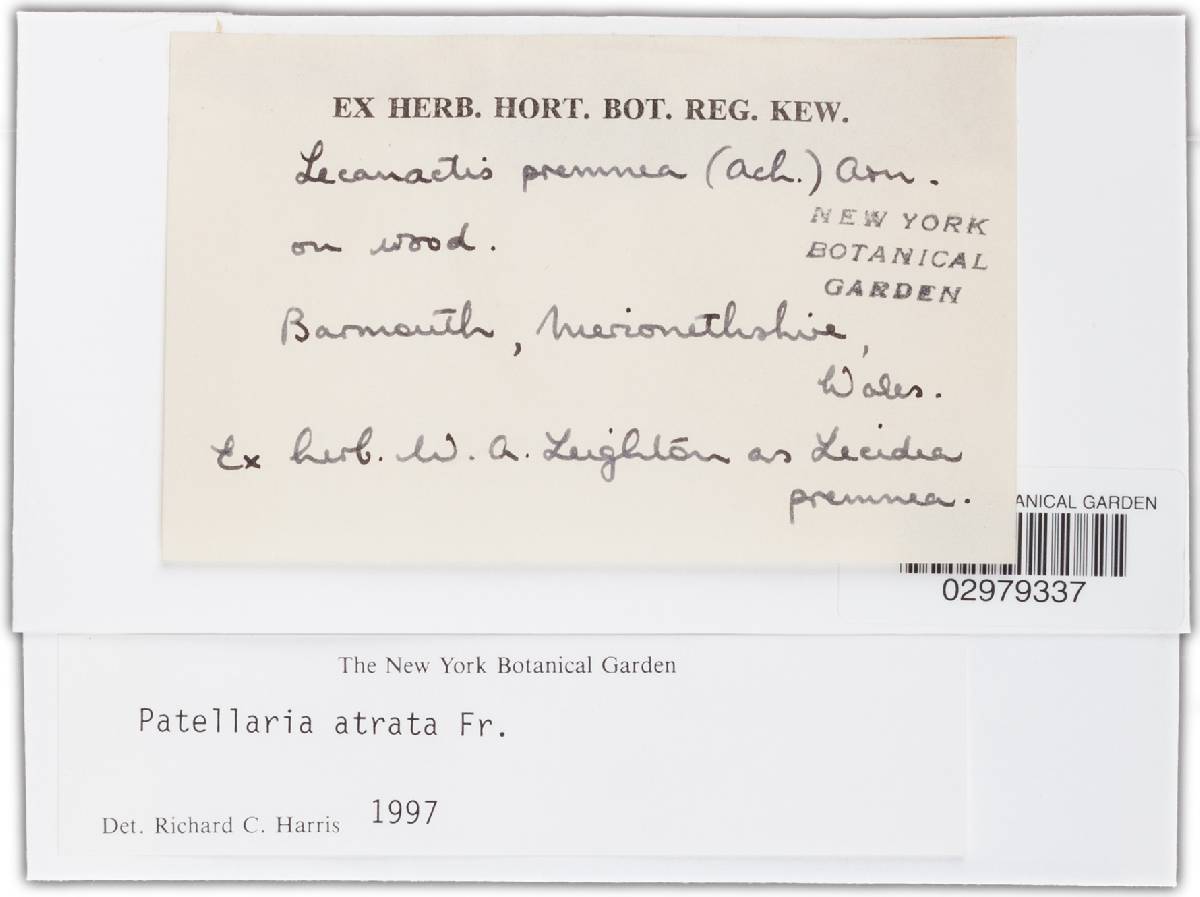 EX HERB. HORT. BOT. REG. KEW.
Lecanactis premnea (Ach.) Arn.
on wood.
NEW YORK
BOTANICAL
GARDEN
Barmouth, Merionethshire,
Wales.
Ex herb. W. A. Leighton as Lecidea
premnea.
ANICAL GARDEN
02979337
The New York Botanical Garden
Patellaria atrata Fr.
Det. Richard C. Harris 1997